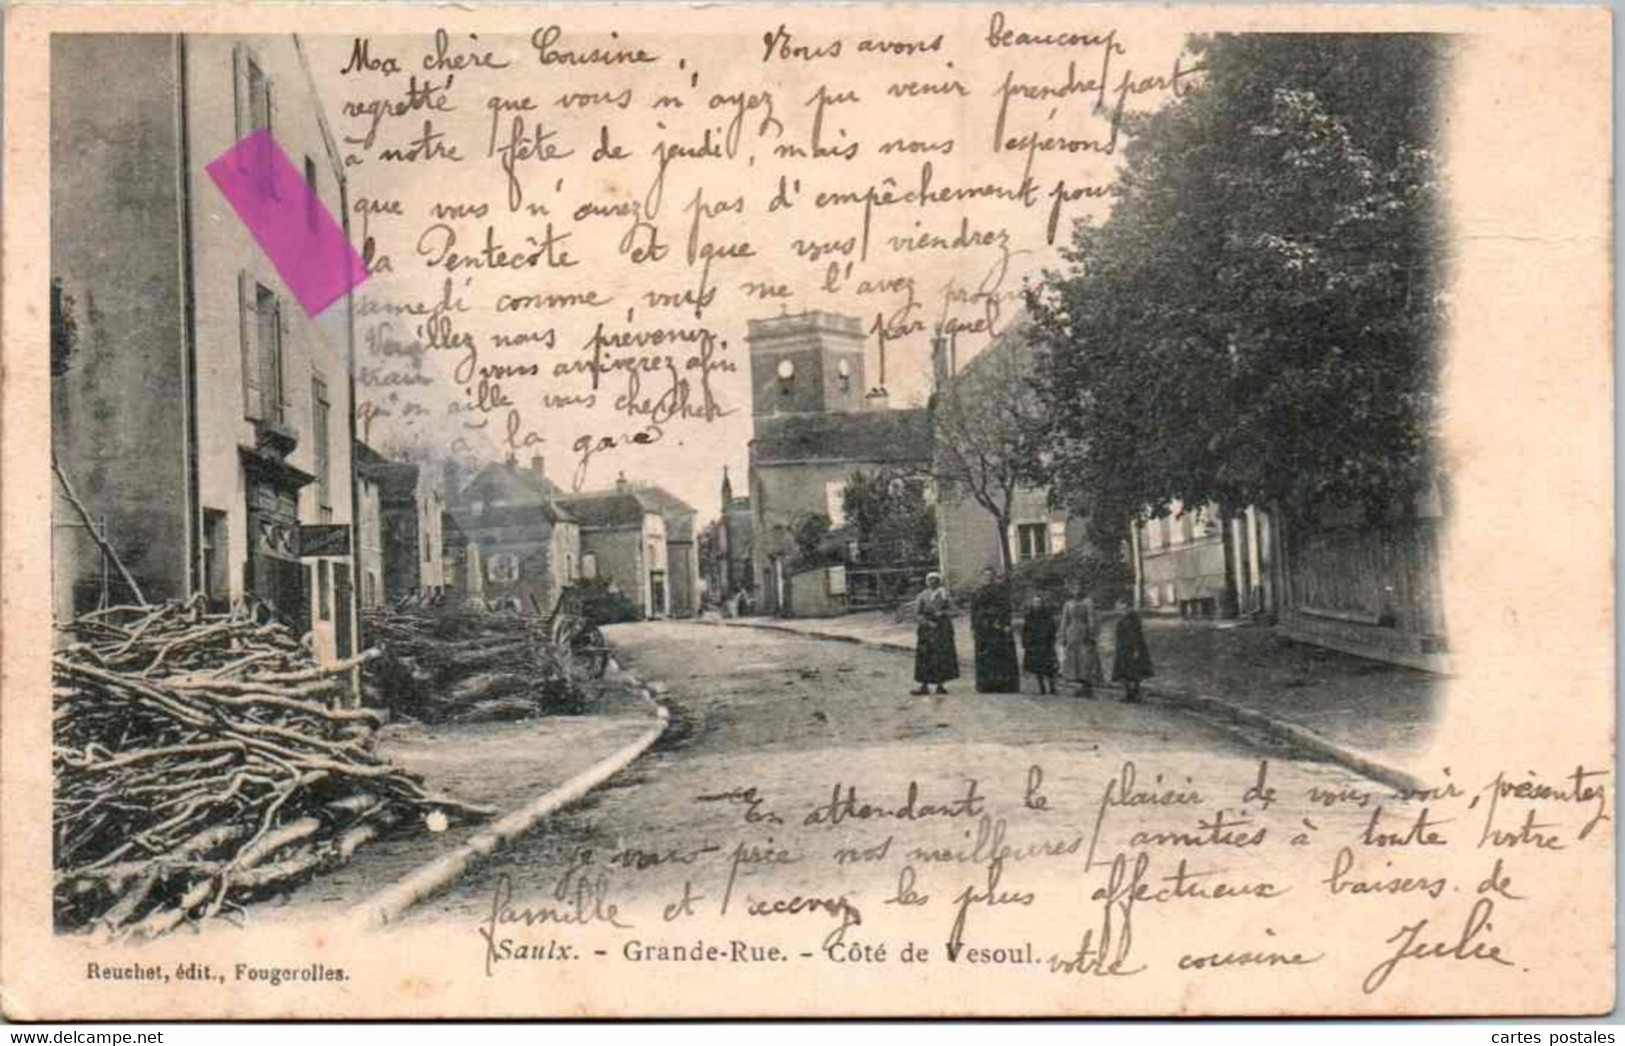 Ma chère Cousine, Nous avons beaucoup
regretté que vous n'ayez pu venir prendre part
à notre fête de jeudi, mais nous espérons
que vous n'aurez pas d'empêchement pour
la Pentecôte et que vous viendrez
samedi comme vous me l'avez promis
Veuillez nous prévenir, par quel
train vous arriverez afin
qu'on aille vous chercher
à la gare.
En attendant le plaisir de vous voir, présentez
je vous prie nos meilleures amitiés à toute votre
famille et recevez les plus affectueux baisers de
votre cousine Julie.
Saulx. - Grande-Rue. - Côté de Vesoul.
Reuchet, édit., Fougerolles.
cartes postales